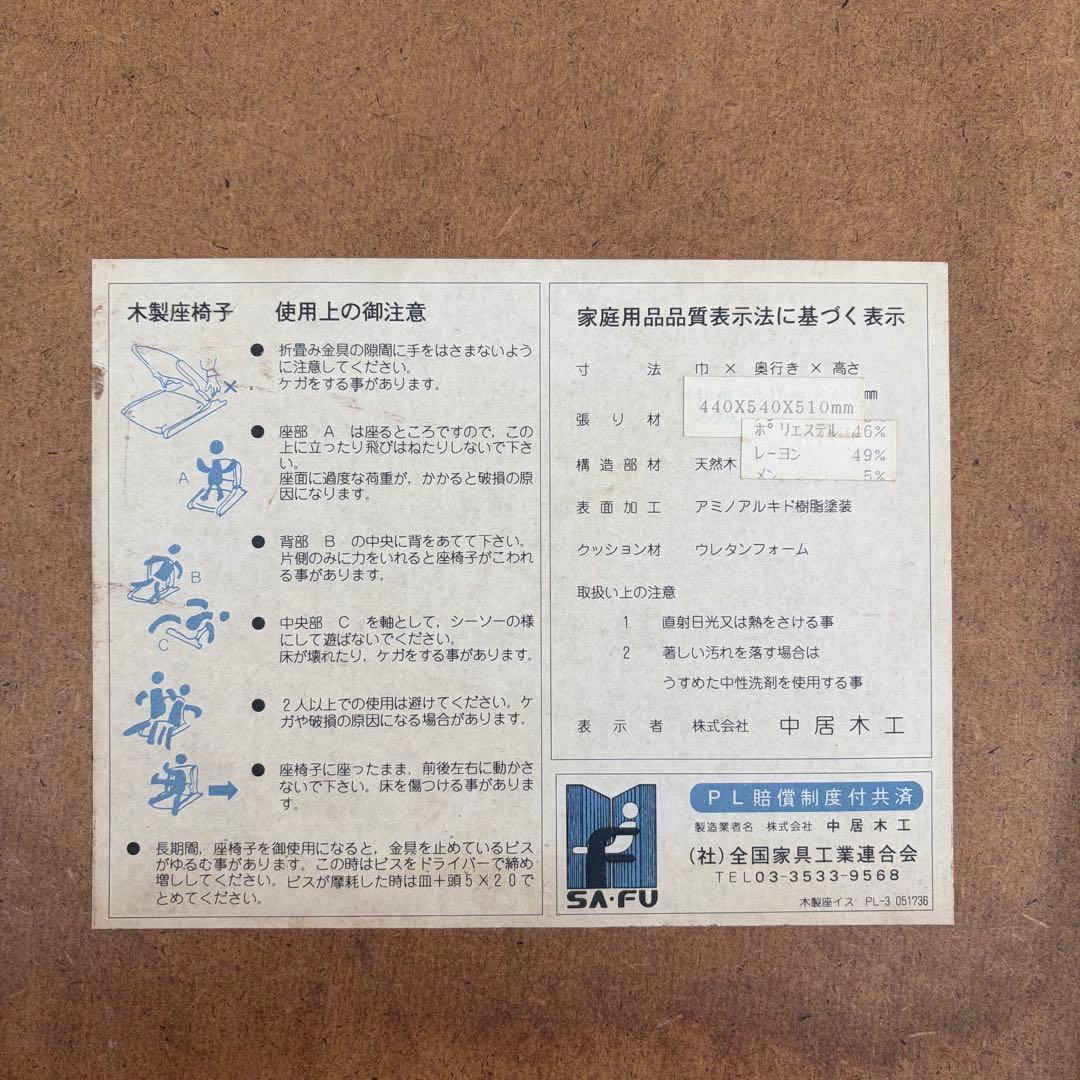 木製座椅子 使用上の御注意
● 折畳み金具の隙間に手をはさまないよう
に注意してください。
ケガをする事があります。
● 座部 A は座るところですので，この
上に立ったり飛びはねたりしないで下さ
い。
座面に過度な荷重が，かかると破損の原
因になります。
A
● 背部 B の中央に背をあてて下さい。
片側のみに力をいれると座椅子がこわれ
る事があります。
B
● 中央部 C を軸として，シーソーの様
にして遊ばないでください。
床が壊れたり，ケガをする事があります。
C
● 2人以上での使用は避けてください。ケ
ガや破損の原因になる場合があります。
● 座椅子に座ったまま，前後左右に動かさ
ないで下さい。床を傷つける事がありま
す。
● 長期間，座椅子を御使用になると，金具を止めているビス
がゆるむ事があります。この時はビスをドライバーで締め
増ししてください。ビスが摩耗した時は皿＋頭5×20で
とめてください。
家庭用品品質表示法に基づく表示
寸法 巾 × 奥行き × 高さ
mm
440X540X510mm
張り材
ポリエステル 46%
レーヨン 49%
メン 5%
構造部材 天然木
表面加工 アミノアルキド樹脂塗装
クッション材 ウレタンフォーム
取扱い上の注意
1 直射日光又は熱をさける事
2 著しい汚れを落す場合は
うすめた中性洗剤を使用する事
表示者 株式会社 中居木工
SA・FU
PL賠償制度付共済
製造業者名 株式会社 中居木工
(社)全国家具工業連合会
TEL03-3533-9568
木製座イス PL-3 051736